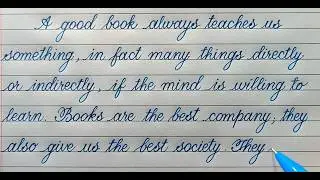 A good book always teaches us
something, in fact many things directly
or indirectly, if the mind is willing to
learn. Books are the best company; they
also give us the best society. They